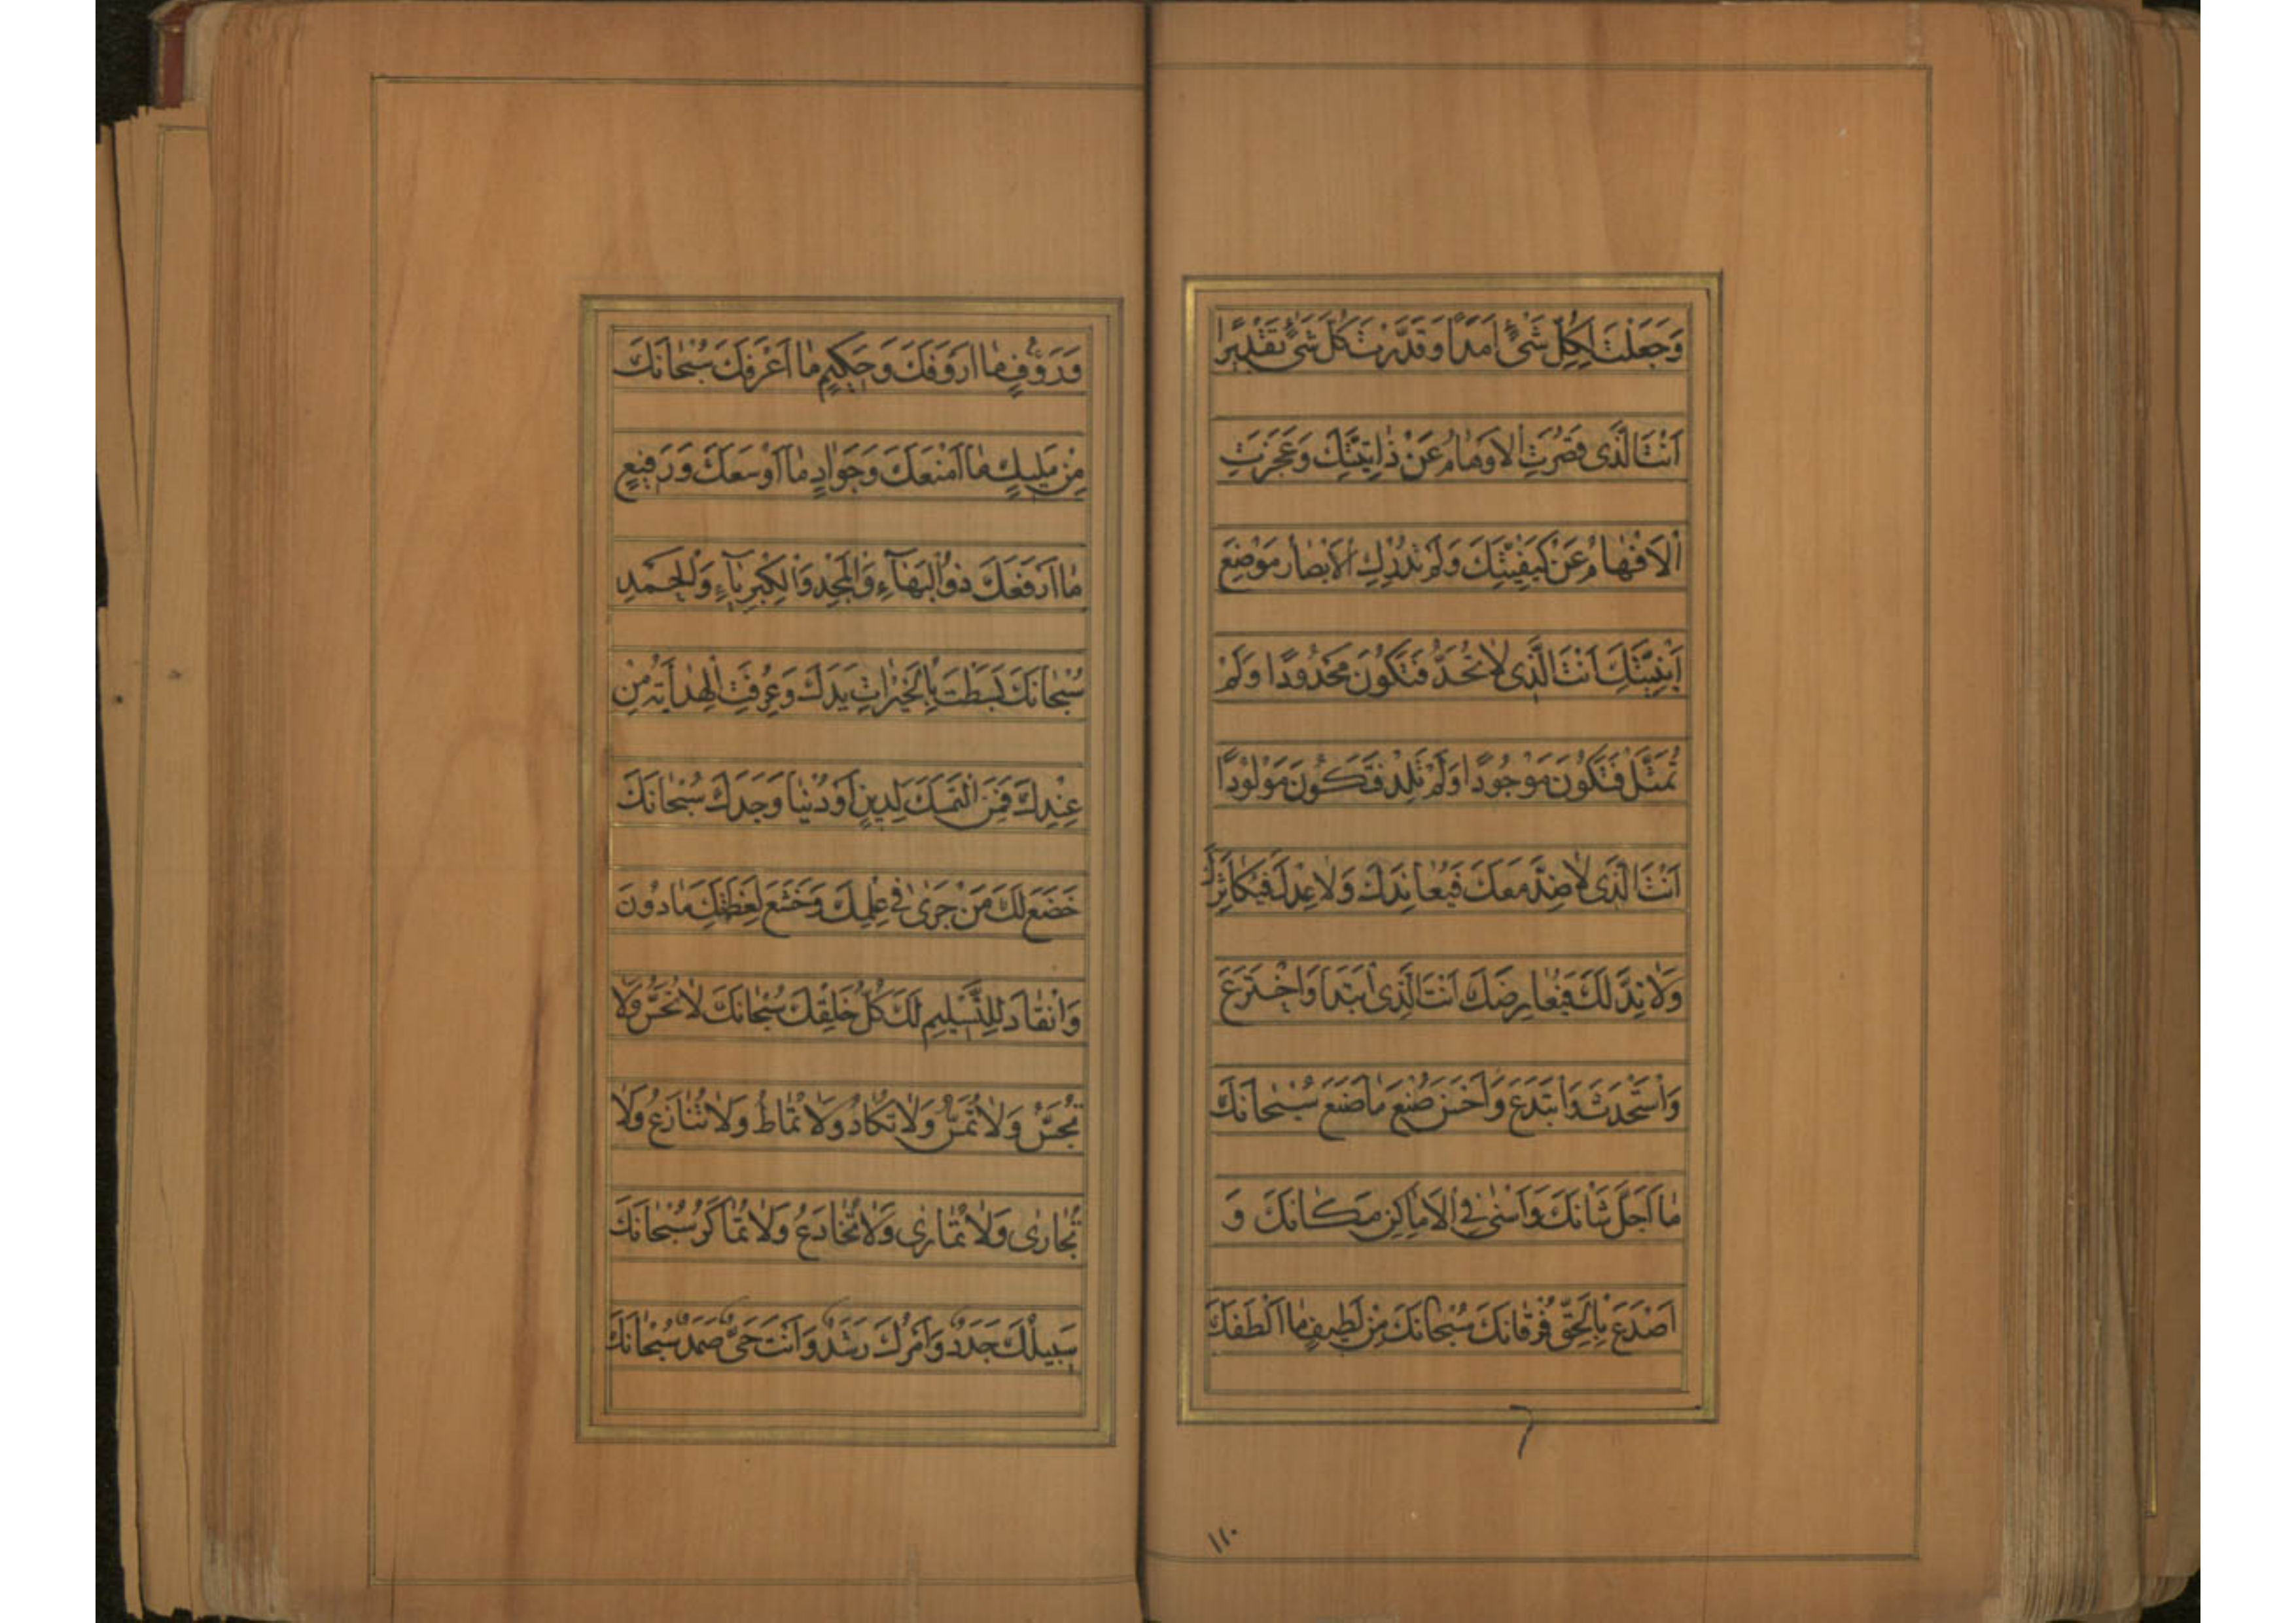 وَجَعَلْتَ لِكُلِّ شَیْءٍ اَمَدًا وَقَدَّرْتَ كُلَّ شَیْءٍ تَقْدِيرًا
اَنْتَ الَّذی قَصُرَتِ الْاَوهَامُ عَنْ ذَاتِيَّتِكَ وَعَجَزَتِ
الْاَفْهَامُ عَنْ كَيْفِيَّتِكَ وَلَمْ تُدْرِكِ الْاَبْصَارُ مَوْضِعَ
اَيْنِيَّتِكَ اَنْتَ الَّذی لَا تُحَدُّ فَتَكُونَ مَحْدُودًا وَلَمْ
تُمَثَّلْ فَتَكُونَ مَوْجُودًا وَلَمْ تَلِدْ فَتَكُونَ مَوْلُودًا
اَنْتَ الَّذی لَا ضِدَّ مَعَكَ فَيُعَانِدَكَ وَلَا عِدْلَ فَيُكَاثِرَكَ
وَلَا نِدَّ لَكَ فَيُعَارِضَكَ اَنْتَ الَّذی ابْتَدَاَ وَاخْتَرَعَ
وَاسْتَحْدَثَ وَابْتَدَعَ وَاَحْسَنَ صُنْعَ مَا صَنَعَ سُبْحَانَكَ
مَا اَجَلَّ شَأْنَكَ وَاَسْنٰی فِی الْاَمَاكِنِ مَكَانَكَ وَ
اَصْدَعَ بِالْحَقِّ فُرْقَانَكَ سُبْحَانَكَ مِنْ لَطِيفٍ مَا اَلْطَفَكَ
١١٠
وَرَؤُفٍ مَا اَرْوَفَكَ وَحَكِيمٍ مَا اَعْرَفَكَ سُبْحَانَكَ
مِنْ مَلِيكٍ مَا اَمْنَعَكَ وَجَوَادٍ مَا اَوْسَعَكَ وَرَفِيعٍ
مَا اَرْفَعَكَ ذُو الْبَهَآءِ وَالْمَجْدِ وَالْكِبْرِيَآءِ وَالْحَمْدِ
سُبْحَانَكَ بَسَطْتَ بِالْخَيْرَاتِ يَدَكَ وَعُرِفَتِ الْهِدَايَةُ مِنْ
عِنْدِكَ فَمَنِ الْتَمَسَكَ لِدِينٍ اَوْ دُنْيَا وَجَدَكَ سُبْحَانَكَ
خَضَعَ لَكَ مَنْ جَرٰی فِی عِلْمِكَ وَخَشَعَ لِعَظَمَتِكَ مَا دُونَ
وَانْقَادَ لِلتَّسْلِيمِ لَكَ كُلُّ خَلْقِكَ سُبْحَانَكَ لَا تُحَسُّ وَلَا
تُجَسُّ وَلَا تُمَسُّ وَلَا تُكَادُ وَلَا تُمَاطُ وَلَا تُنَازَعُ وَلَا
تُجَارٰی وَلَا تُمَارٰی وَلَا تُخَادَعُ وَلَا تُمَاكَرُ سُبْحَانَكَ
سَبِيلُكَ جَدَدٌ وَاَمْرُكَ رَشَدٌ وَاَنْتَ حَیٌّ صَمَدٌ سُبْحَانَكَ